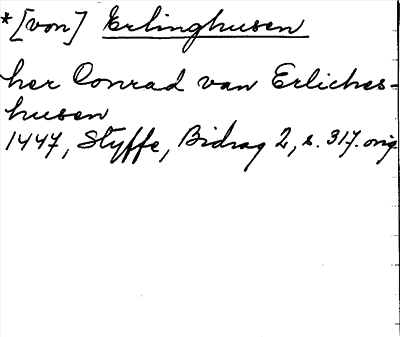 *[von] Erlinghusen
her Conrad van Erliches-
husen
1447, Styffe, Bidrag 2, s. 317. orig.